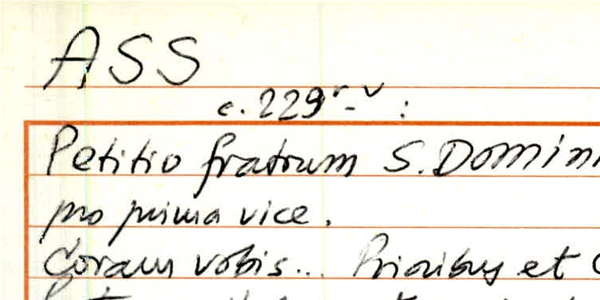 ASS
c. 229r-v :
Petitio fratrum S. Domini
pro prima vice.
Coram vobis... Prioribus et